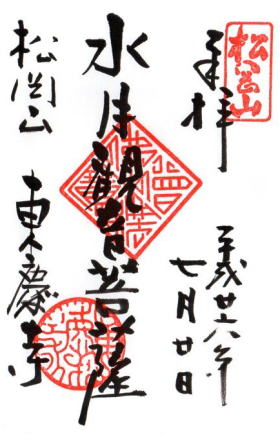 松岡山
奉拝
平成廿六年
七月廿日
水月観音菩薩
松岡山
東慶寺